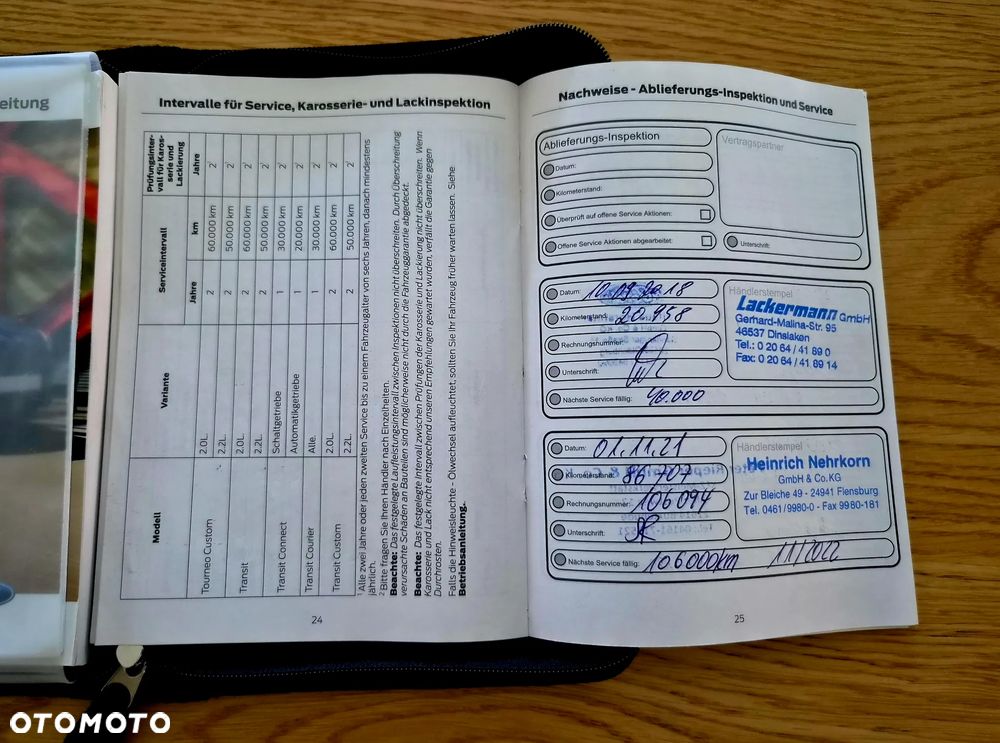 eitung
Intervalle für Service, Karosserie- und Lackinspektion
Modell
Variante
Serviceintervall
Prüfungsinter-
vall für Karos-
serie und
Lackierung
Jahre
km
Jahre
Tourneo Custom
2.0L
2
60.000 km
2¹
2.2L
2
50.000 km
2¹
Transit
2.0L
2
60.000 km
2¹
2.2L
2
50.000 km
2¹
Transit Connect
Schaltgetriebe
1
30.000 km
2¹
Automatikgetriebe
1
20.000 km
2¹
Transit Courier
Alle.
1
30.000 km
2¹
Transit Custom
2.0L
2
60.000 km
2¹
2.2L
2
50.000 km
2¹
¹ Alle zwei Jahre oder jeden zweiten Service bis zu einem Fahrzeugalter von sechs Jahren, danach mindestens
jährlich.
² Bitte fragen Sie Ihren Händler nach Einzelheiten.
Beachte: Das festgelegte Laufleistungsintervall zwischen Inspektionen nicht überschreiten. Durch Überschreitung
verursachte Schäden an Bauteilen sind möglicherweise nicht durch die Fahrzeuggarantie abgedeckt.
Beachte: Das festgelegte Intervall zwischen Prüfungen der Karosserie und Lackierung nicht überschreiten. Wenn
Karosserie und Lack nicht entsprechend unseren Empfehlungen gewartet wurden, verfällt die Garantie gegen
Durchrosten.
Falls die Hinweisleuchte - Ölwechsel aufleuchtet, sollten Sie Ihr Fahrzeug früher warten lassen. Siehe
Betriebsanleitung.
24
Nachweise - Ablieferungs-Inspektion und Service
Ablieferungs-Inspektion
Datum:
Kilometerstand:
Überprüft auf offene Service Aktionen:
Offene Service Aktionen abgearbeitet:
Vertragspartner
Unterschrift:
Datum: 10.09.2018
Kilometerstand: 20.958
Rechnungsnummer:
Unterschrift:
Nächste Service fällig: 40.000
Händlerstempel
Lackermann GmbH
Gerhard-Malina-Str. 95
46537 Dinslaken
Tel.: 0 20 64 / 41 89 0
Fax: 0 20 64 / 41 89 14
Datum: 01.11.21
Kilometerstand: 86 707
Rechnungsnummer: 106094
Unterschrift:
Nächste Service fällig: 106000km 11/2022
Händlerstempel
Heinrich Nehrkorn
GmbH & Co.KG
Zur Bleiche 49 - 24941 Flensburg
Tel. 0461/9980-0 - Fax 9980-181
25
OTOMOTO